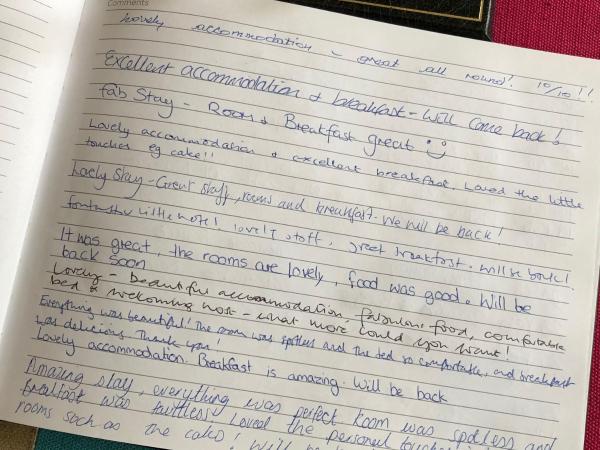 Comments
Lovely accommodation - great all round! 10/10!!
Excellent accommodation & breakfast - Will come back!
Fab Stay - Room & Breakfast great
Lovely accommodation & excellent breakfast. Loved the little
touches eg cake!!
Lovely Stay - Great Staff, rooms and breakfast. We will be back!
fantastic little hotel lovely staff, great breakfast. will be back!
It was great, the rooms are lovely, food was good. Will be
back soon
Lovely - beautiful accommodation, fabulous food, comfortable
bed & welcoming host - what more could you want!
Everything was beautiful! The room was spotless and the bed so comfortable, and breakfast
was delicious. Thank you!
Lovely accommodation. Breakfast is amazing. Will be back
Amazing stay, everything was perfect Room was spotless and
breakfast was faultless. Loved the personal touches in
rooms such as the cake! Will be